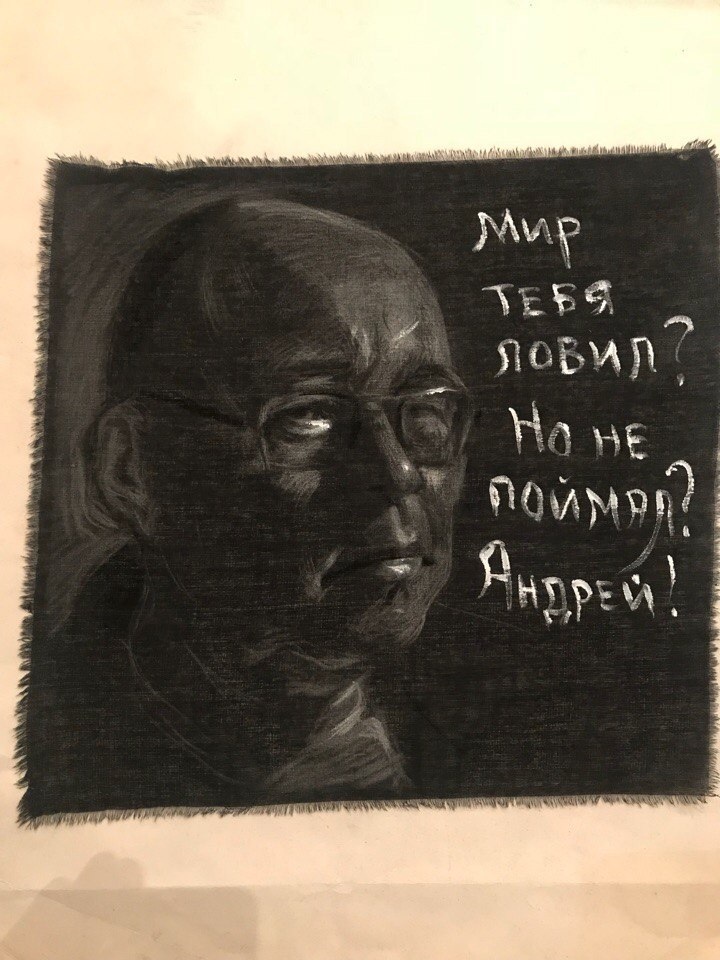 Мир
ТЕБЯ
ЛОВИЛ?
НО НЕ
ПОЙМАЛ?
АНДРЕЙ!